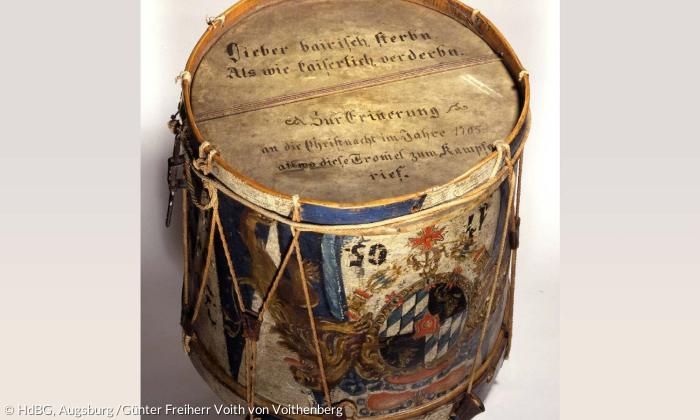 Lieber bairisch sterbn.
Als wie kaiserlich verderbn.
Zur Erinerung
an die Christnacht im Jahre 1705
allwo diese Tromel zum Kampfe
rief.
17
05
© HdBG, Augsburg /Günter Freiherr Voith von Voithenberg